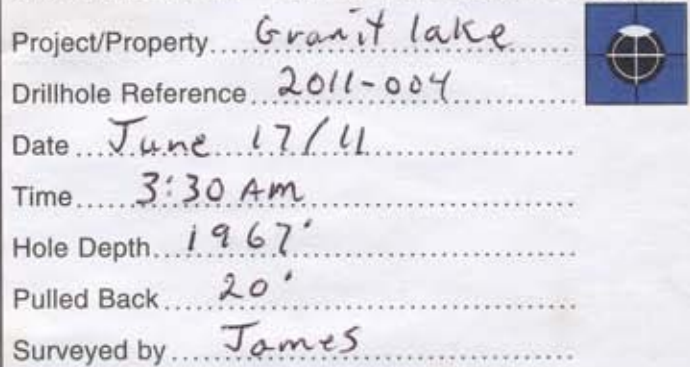 Project/Property Granit lake
Drillhole Reference 2011-004
Date June 17/11
Time 3:30 AM
Hole Depth 1967'
Pulled Back 20'
Surveyed by James